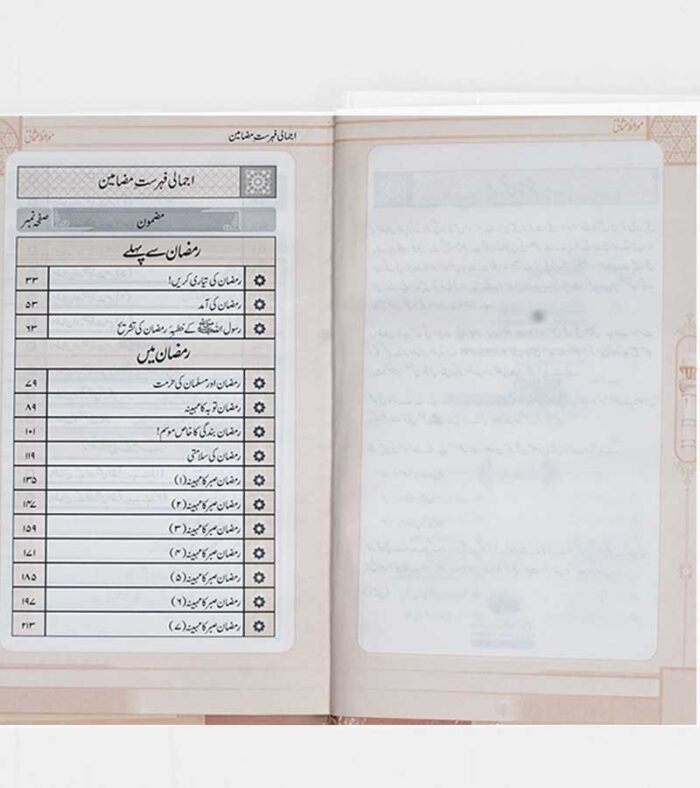 اجمالی فہرست مضامین
اجمالی فہرست مضامین
مضمون صفحہ نمبر
رمضان سے پہلے
رمضان کی تیاری کریں! ۳۳
رمضان کی آمد ۵۳
رسول اللہ ﷺ کے خطبۂ رمضان کی تشریح ۶۳
رمضان میں
رمضان اور مسلمان کی حرمت ۷۹
رمضان توبہ کا مہینہ ۸۹
رمضان بندگی کا خاص موسم! ۱۰۱
رمضان کی سلامتی ۱۱۹
رمضان صبر کا مہینہ (۱) ۱۳۵
رمضان صبر کا مہینہ (۲) ۱۴۷
رمضان صبر کا مہینہ (۳) ۱۵۹
رمضان صبر کا مہینہ (۴) ۱۷۱
رمضان صبر کا مہینہ (۵) ۱۸۵
رمضان صبر کا مہینہ (۶) ۱۹۷
رمضان صبر کا مہینہ (۷) ۲۱۳